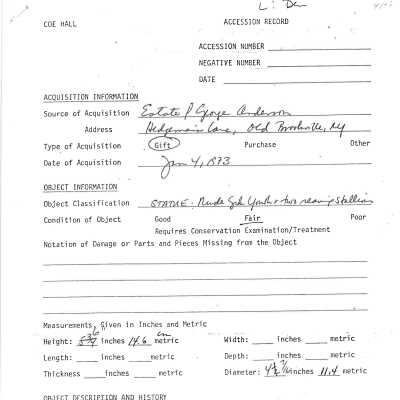 L: Den
COE HALL
ACCESSION RECORD
ACCESSION NUMBER
NEGATIVE NUMBER
DATE
ACQUISITION INFORMATION
Source of Acquisition Estate of George Anderson
Address Hedgemans Lane, Old Brookville, NY
Type of Acquisition Gift Purchase Other
Date of Acquisition Jan 4, 1973
OBJECT INFORMATION
Object Classification STATUE: Nude Youth + two rearing stallions
Condition of Object Good Fair Poor
Requires Conservation Examination/Treatment
Notation of Damage or Parts and Pieces Missing from the Object
Measurements, Given in Inches and Metric
Height: inches 14.6 cm metric Width: inches metric
Length: inches metric Depth: inches metric
Thickness inches metric Diameter: inches 11.4 metric
OBJECT DESCRIPTION AND HISTORY